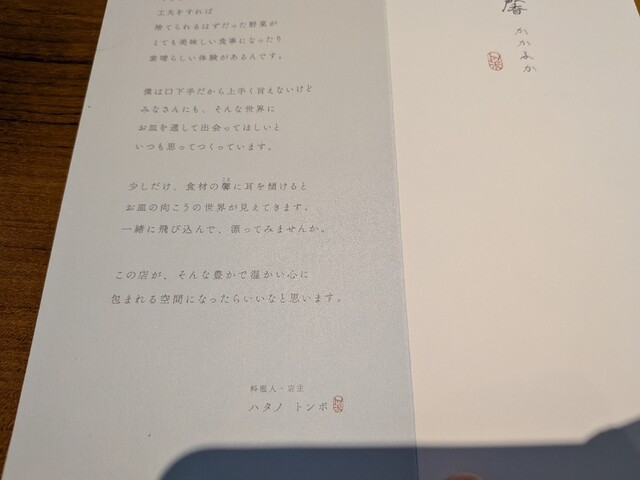 工夫をすれば
捨てられるはずだった野菜が
とても美味しい食事になったり
素晴らしい体験があるんです。
僕は口下手だから上手く言えないけど
みなさんにも、そんな世界に
お皿を通して出会ってほしいと
いつも思ってつくっています。
少しだけ、食材の馨に耳を傾けると
お皿の向こうの世界が見えてきます。
一緒に飛び込んで、漂ってみませんか。
この店が、そんな豊かで温かい心に
包まれる空間になったらいいなと思います。
料理人・店主
ハタノ トンボ
馨